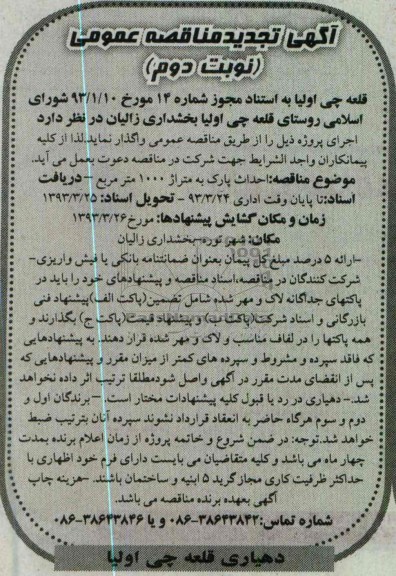 آگهی تجدیدمناقصه عمومی
(نوبت دوم)
قلعه چی اولیا به استناد مجوز شماره ۱۴ مورخ ۹۳/۱/۱۰ شورای
اسلامی روستای قلعه چی اولیا بخشداری زالیان در نظر دارد
اجرای پروژه ذیل را از طریق مناقصه عمومی واگذار نماید.لذا از کلیه
پیمانکاران واجد الشرایط جهت شرکت در مناقصه دعوت بعمل می آید.
موضوع مناقصه:احداث پارک به متراژ ۱۰۰۰ متر مربع –دریافت
اسناد:تا پایان وقت اداری ۹۳/۳/۲۴ - تحویل اسناد: ۱۳۹۳/۳/۲۵
زمان و مکان گشایش پیشنهادها: مورخ۱۳۹۳/۳/۲۶
مکان: شهر توره-بخشداری زالیان
–ارائه ۵ درصد مبلغ کل پیمان بعنوان ضمانتنامه بانکی یا فیش واریزی–
شرکت کنندگان در مناقصه،اسناد مناقصه و پیشنهادهای خود را باید در
پاکتهای جداگانه لاک و مهر شده شامل تضمین(پاکت الف)پیشنهاد فنی
بازرگانی و اسناد شرکت(پاکت ب) و پیشنهاد قیمت(پاکت ج) بگذارند و
همه پاکتها را در لفاف مناسب و لاک و مهر شده قرار دهند. به پیشنهادهایی
که فاقد سپرده و مشروط و سپرده های کمتر از میزان مقرر و پیشنهادهایی که
پس از انقضای مدت مقرر در آگهی واصل شودمطلقا ترتیب اثر داده نخواهد
شد.- دهیاری در رد یا قبول کلیه پیشنهادات مختار است. – برندگان اول و
دوم و سوم هرگاه حاضر به انعقاد قرارداد نشوند سپرده آنان بترتیب ضبط
خواهد شد.توجه: در ضمن شروع و خاتمه پروژه از زمان اعلام برنده بمدت
چهار ماه می باشد و کلیه متقاضیان می بایست دارای فرم خود اظهاری با
حداکثر ظرفیت کاری مجاز گرید ۵ ابنیه و ساختمان باشند. –هزینه چاپ
آگهی بعهده برنده مناقصه می باشد.
شماره تماس:۳۸۶۴۳۸۴۲-۰۸۶ و یا ۳۸۶۴۳۸۴۶-۰۸۶
دهیاری قلعه چی اولیا